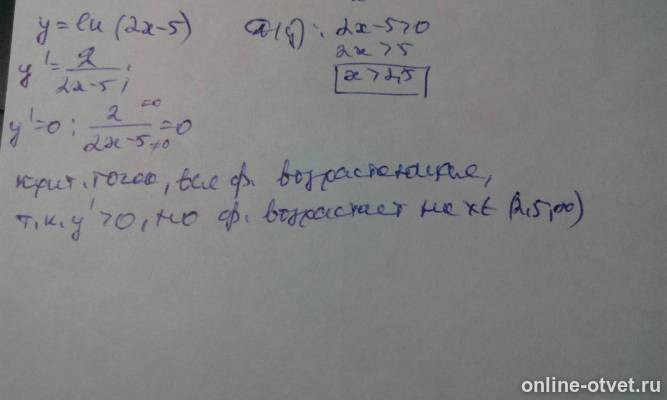 y = ln (2x-5)
D(y): 2x-5>0
2x > 5
x > 2,5
y' = 2/(2x-5);
y'=0 : 2/(2x-5) = 0
=0
≠0
крит. точек, вся ф. возрастающая,
т.к. y' >0, но ф. возрастает на x∈ (2,5,∞)
online-otvet.ru